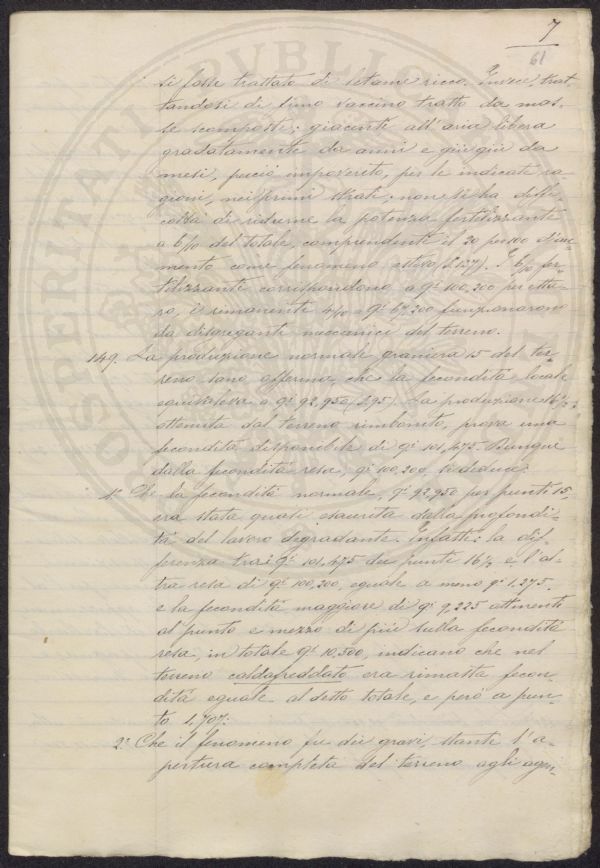 7
61
si fosse trattato di letame ricco. Invece, trat-
tandosi di fimo vaccino tratto da mas-
se scomposte, giacenti all'aria libera
gradatamente da anni e giù giù da
mesi, perciò impoverito, per le indicate ra-
gioni, nei primi strati; non si ha diffi-
coltà di ridurne la potenza fertilizzante
a 6/10 del totale, comprendente il 20 per 100
mento come fenomeno estivo (§ 137). I 6/10 fer-
tilizzanti corrispondono a qi 100,200 per etta-
ro, i rimanenti 4/10 o qi 67,200 funzionarono
da disgreganti meccanici del terreno.
149. La produzione normale graniera 15 del ter-
reno sano afferma, che la fecondità locale
equivaleva a qi 92,950 (§ 95). La produzione 16 1/2
ottenuta dal terreno rimbonito, prova una
fecondità disponibile di qi 101,475. Dunque
dalla fecondità resa, qi 100,200 si deduce:
1° Che la fecondità normale, qi 92,950 per punti 15,
era stata quasi esaurita dalla profondi-
tà del lavoro degradante. Infatti: la dif-
ferenza tra i qi 101,475 dei punti 16 1/2 e l'al-
tra resa di qi 100,200, eguale a meno qi 1,275.
e la fecondità maggiore di qi 9,225 attinenti
al punto e mezzo di più sulla fecondità
resa, in totale qi 10,500, indicano che nel
terreno caldafreddato era rimasta fecon-
dità eguale al detto totale, e però a pun-
to 1,707:
2° Che il fenomeno fu dei gravi, stante l'a-
pertura completa del terreno agli agen-